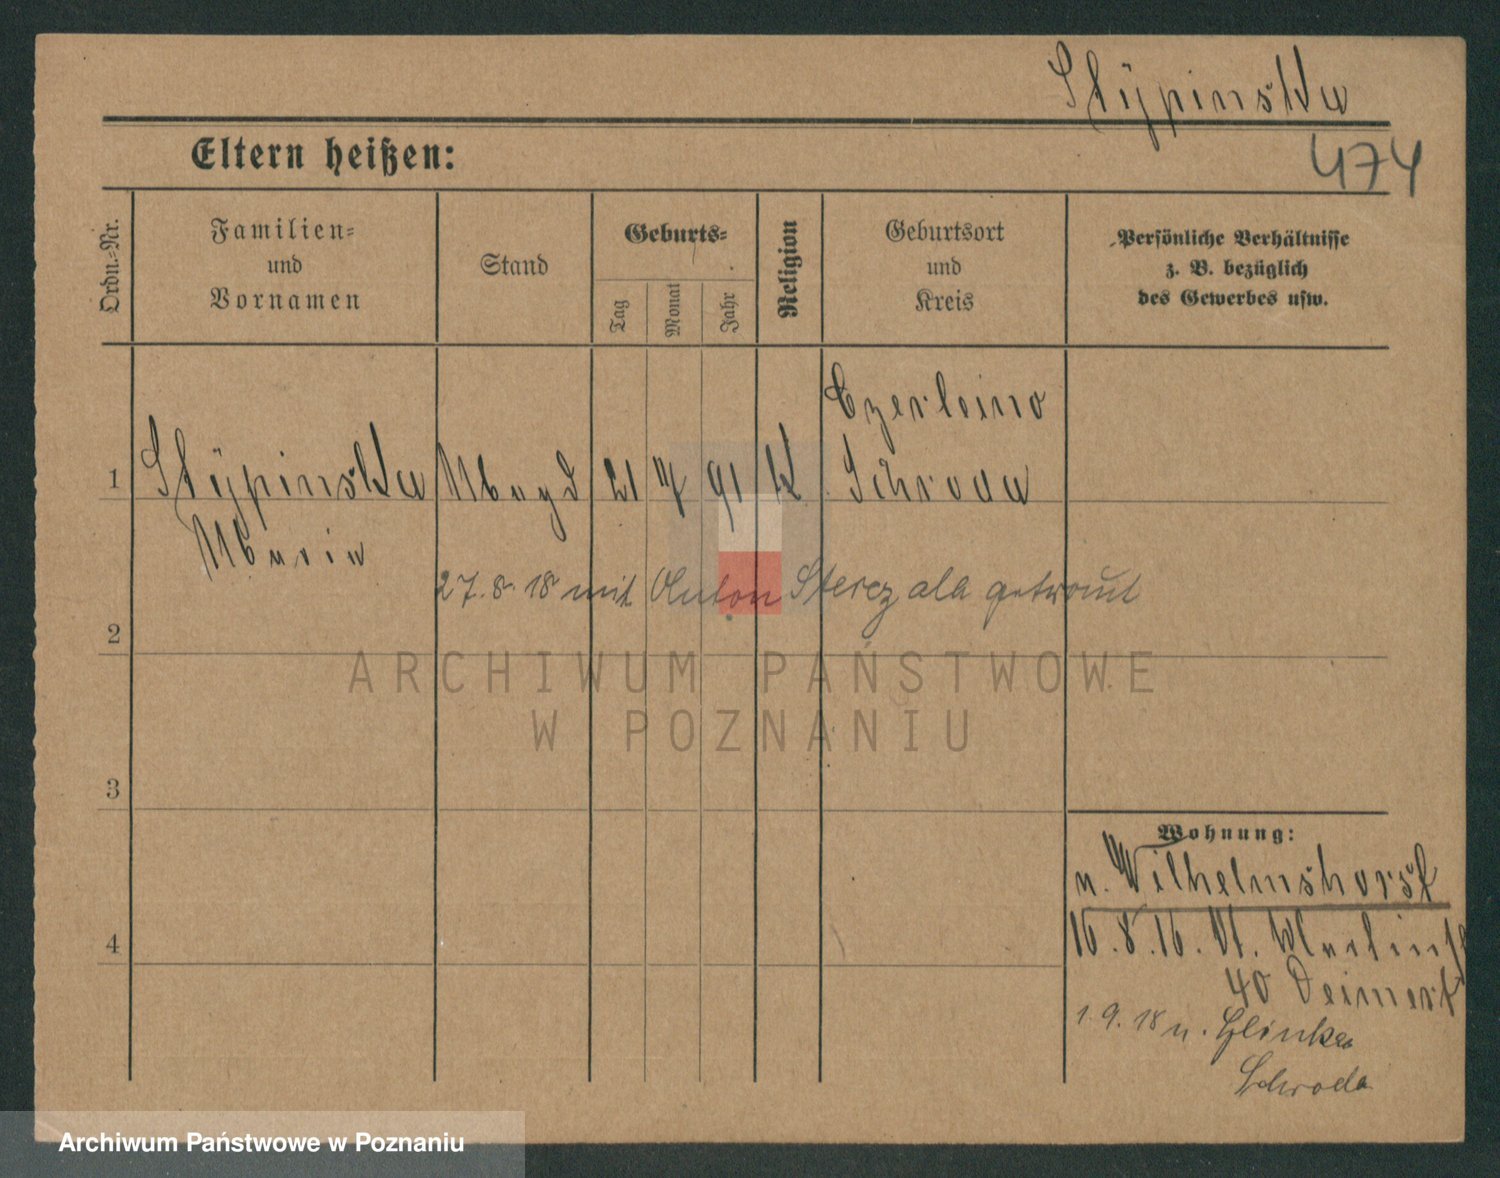 Stÿpinska
474
Eltern heißen:
Ordn.-Nr.
Familien-
und
Vornamen
Stand
Geburts-
Tag
Monat
Jahr
Religion
Geburtsort
und
Kreis
Persönliche Verhältnisse
z. B. bezüglich
des Gewerbes usw.
1
Stÿpinska
Maria
Magd
21
7
91
K
Czerleino
Schroda
27.8.18 mit Anton Sterczala getraut
2
ARCHIWUM PAŃSTWOWE
W POZNANIU
3
4
Wohnung:
n. Wilhelmshorst
16.8.16. St.
40
1.9.18 n. Glinka
Schroda
Archiwum Państwowe w Poznaniu